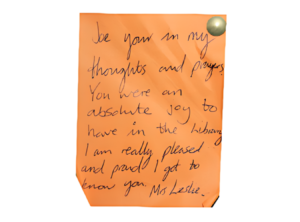 Joe your in my
thoughts and prayers,
You were an
absolute joy to
have in the Library
I am really pleased
and proud I got to
know you. Mrs Leslie.